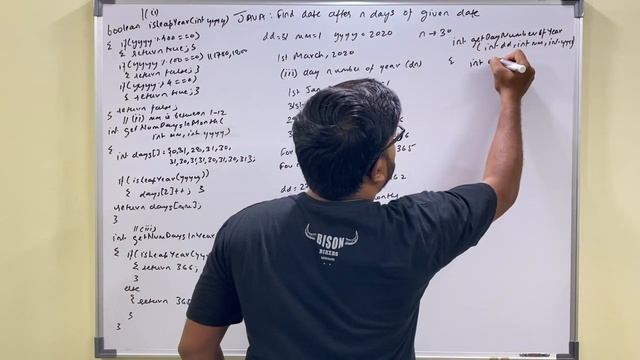 //(i)
boolean isLeapYear(int yyyy)
{ if(yyyy%400==0)
{ return true; }
if(yyyy%100==0)
{ return false; }
if(yyyy%4==0)
{ return true; }
} return false;
//(ii) mm is between 1-12
int getNumDaysInMonth(
int mm, int yyyy)
{ int days[]={0,31,28,31,30,
31,30,31,31,30,31,30,31};
if(isLeapYear(yyyy))
{ days[2]++; }
return days[mm];
}
//(iii)
int getNumDaysInYear
{ if(isLeapYear(
{ return 366;
}
else
{ return 365
}
}
JAVA: Find date after n days of given date
dd=31 mm=1 yyyy=2020 n → 30
1st March, 2020
(iii) day number of year (dn)
1st Jan
31st
365
For
dd=
BISON
BIKERS
int getDayNumberOfYear
(int dd, int mm, int yyyy)
{ int